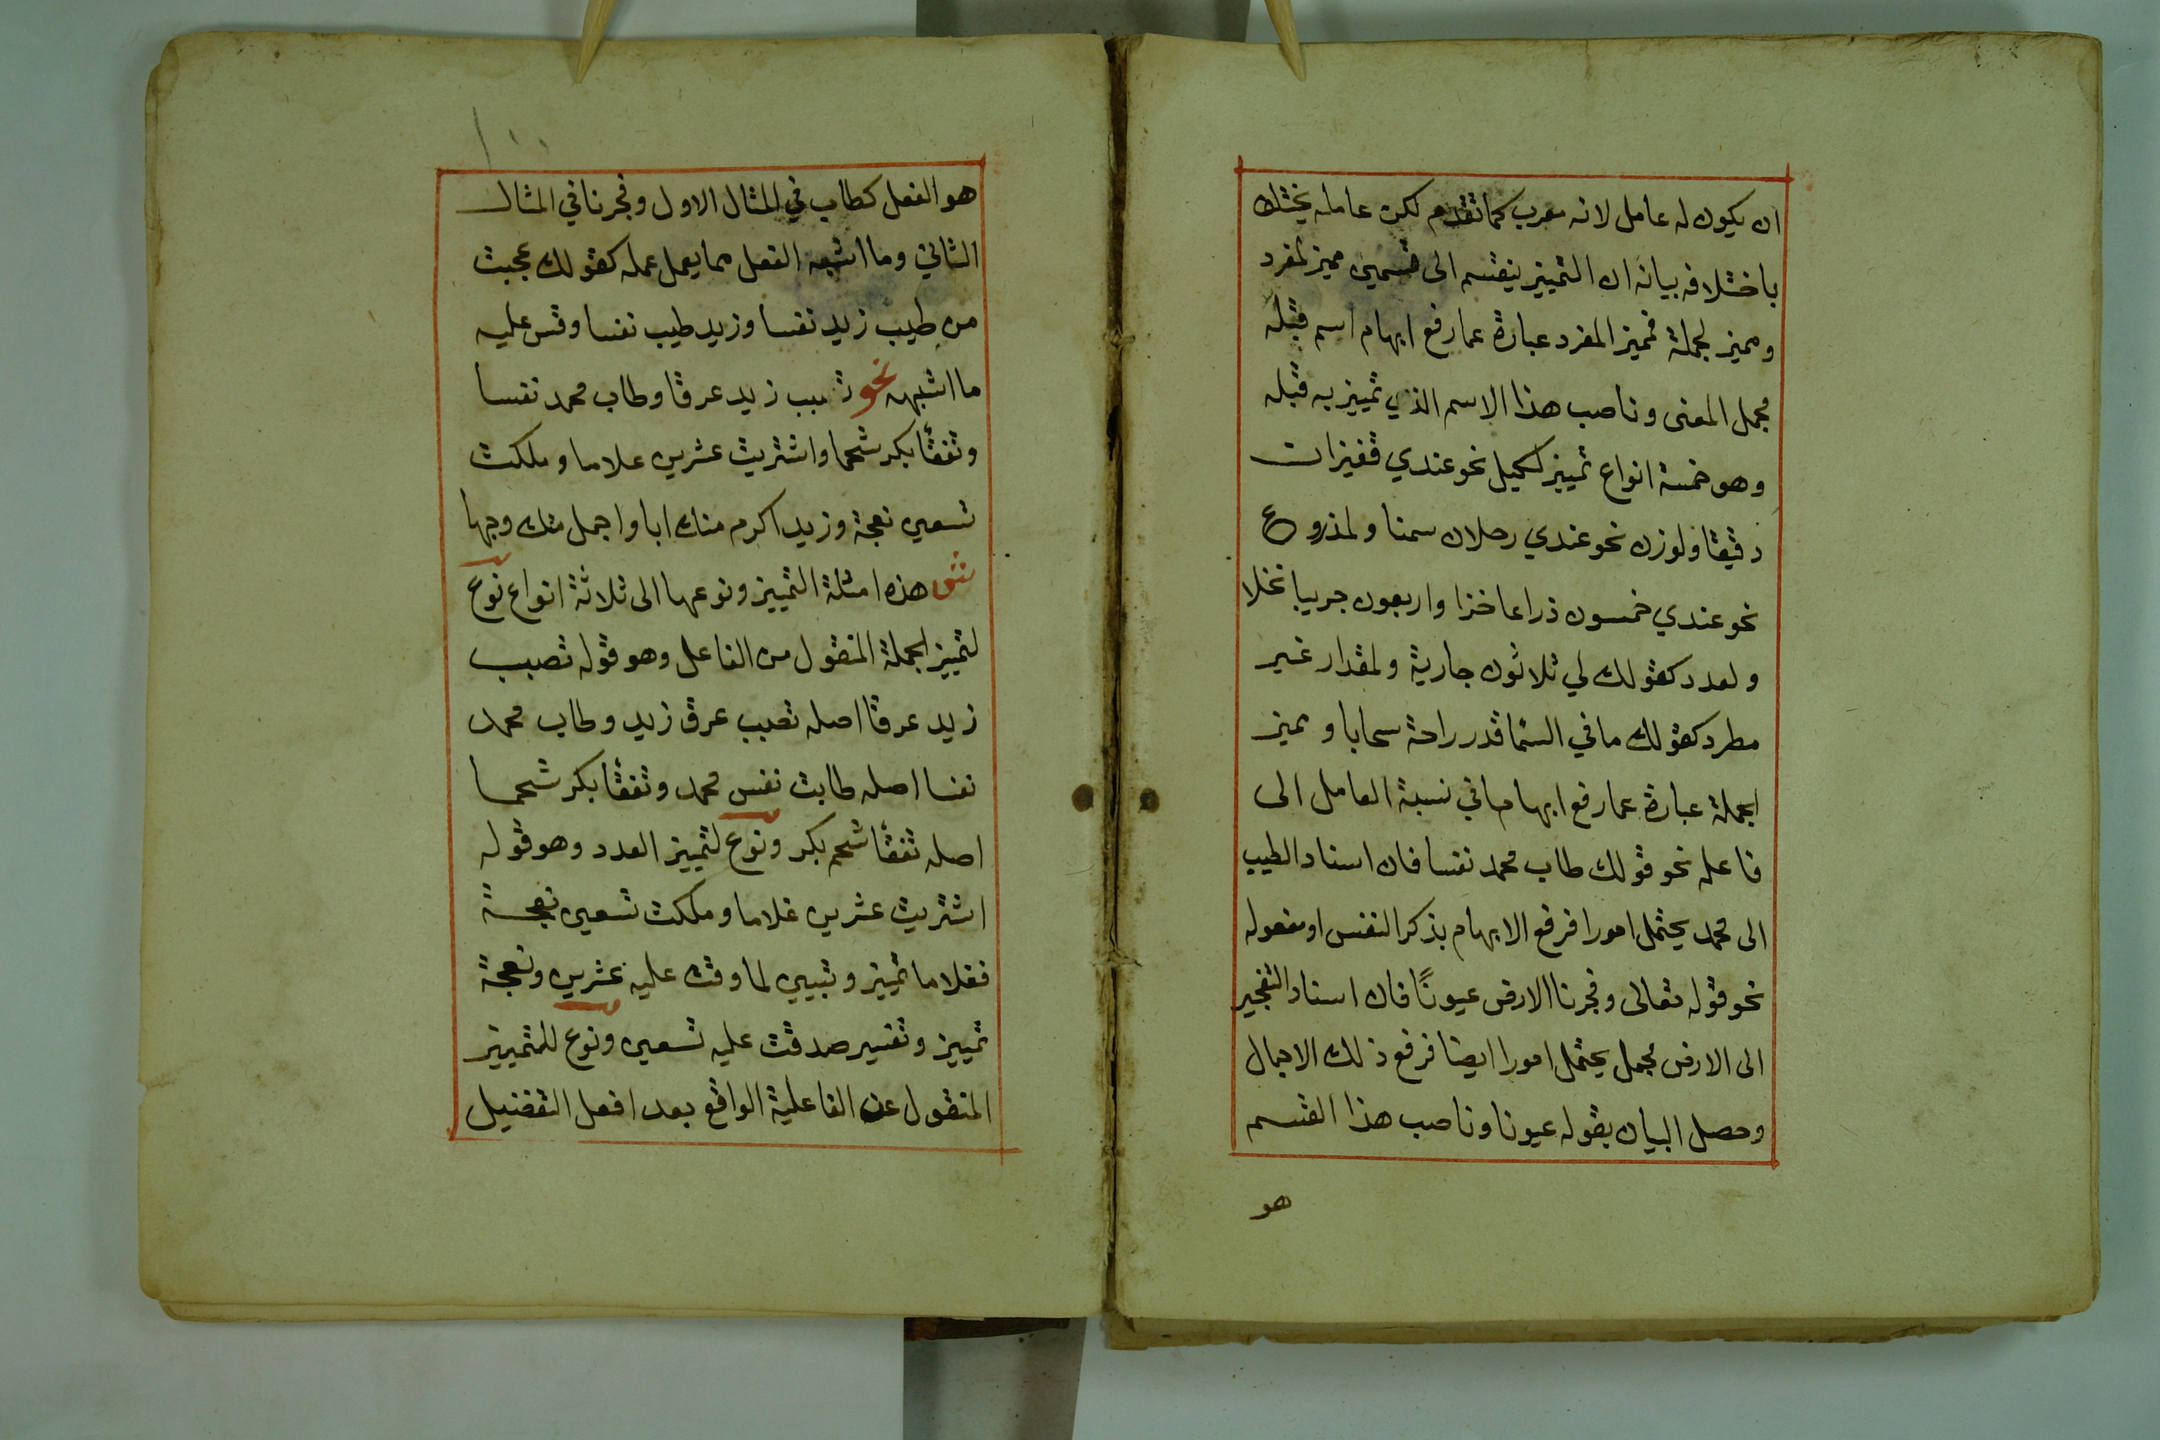 ان يكون له عامل لانه معرب كما تقدم لكن عامله يختلف
باختلافه بيانه ان التمييز ينقسم الى قسمين مميز لمفرد
ومميز لجملة فمميز المفرد عبارة عما رفع ابهام اسم قبله
مجمل المعنى وناصب هذا الاسم الذي تمييز به قبله
وهو خمسة انواع تمييز لكيل نحو عندي قفيزان
دقيقا ولوزن نحو عندي رطلان سمنا ولمذروع
نحو عندي خمسون ذراعا خزا واربعون جريبا نخلا
ولعدد كقولك لي ثلاثون جارية ولمقدار غير
مطرد كقولك ما في السما قدر راحة سحابا ومميز
الجملة عبارة عما رفع ابهام ما في نسبة العامل الى
فاعله نحو قولك طاب محمد نفسا فان اسناد الطيب
الى محمد يحتمل امورا فرفع الابهام بذكر النفس او مفعوله
نحو قوله تعالى وفجرنا الارض عيونًا فان اسناد التفجير
الى الارض مجمل يحتمل امورا ايضا فرفع ذلك الاجمال
وحصل البيان بقوله عيونا وناصب هذا القسم
هو
هو الفعل كطاب في المثال الاول وفجرنا في المثال
الثاني وما اشبه الفعل مما يعمل عمله كقولك عجبت
من طيب زيد نفسا وزيد طيب نفسا وقس عليه
ما اشبهه نحو تصبب زيد عرقا وطاب محمد نفسا
وتفقأ بكر شحما واشتريت عشرين علاما وملكت
تسعين نعجة وزيد اكرم منك ابا واجمل منك وجها
ش هذه امثلة التمييز ونوعها الى ثلاثة انواع نوع
لتمييز الجملة المنقول من الفاعل وهو قوله تصبب
زيد عرقا اصله تصبب عرق زيد وطاب محمد
نفسا اصله طابت نفس محمد وتفقأ بكر شحما
اصله تفقأ شحم بكر ونوع لتمييز العدد وهو قوله
اشتريت عشرين غلاما وملكت تسعين نعجة
فغلاما تمييز وتبيين لما وقت عليه عشرين ونعجة
تمييز وتفسير صدقت عليه تسعين ونوع للتمييز
المنقول عن الفاعلية الواقع بعد افعل التفضيل